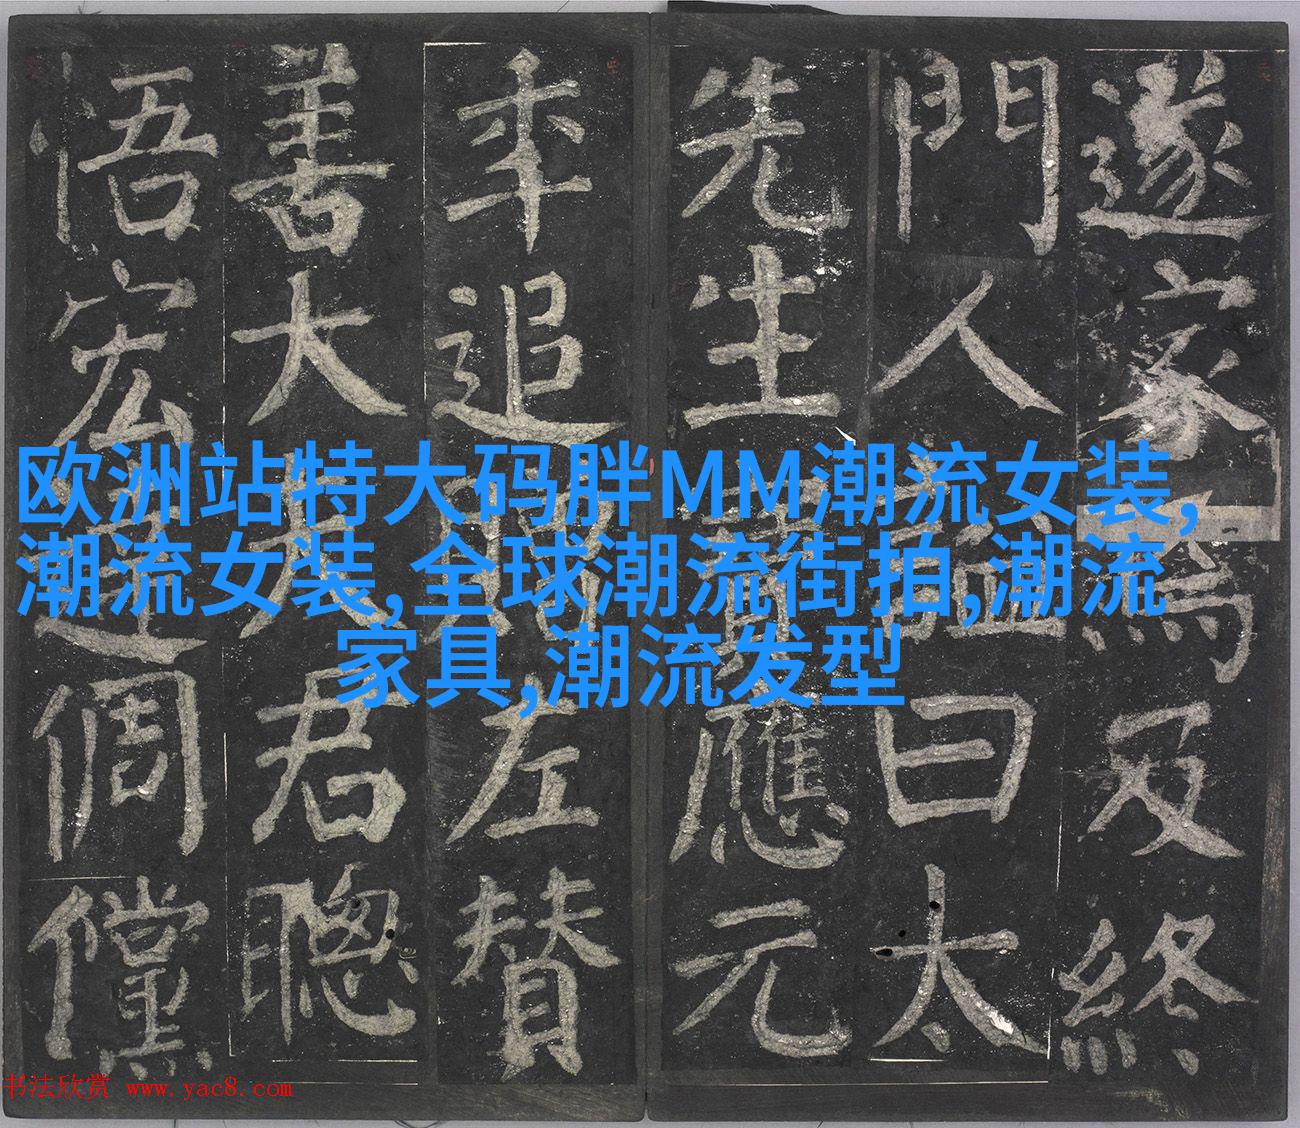 遂家焉及終
門人謚曰太
先生寶應元
年追贈左贊
善大夫君聰
悟宏達倜儻
欧洲站特大码胖MM潮流女装,
潮流女装,全球潮流街拍,潮流
家具,潮流发型
书法欣赏 www.yac8.com